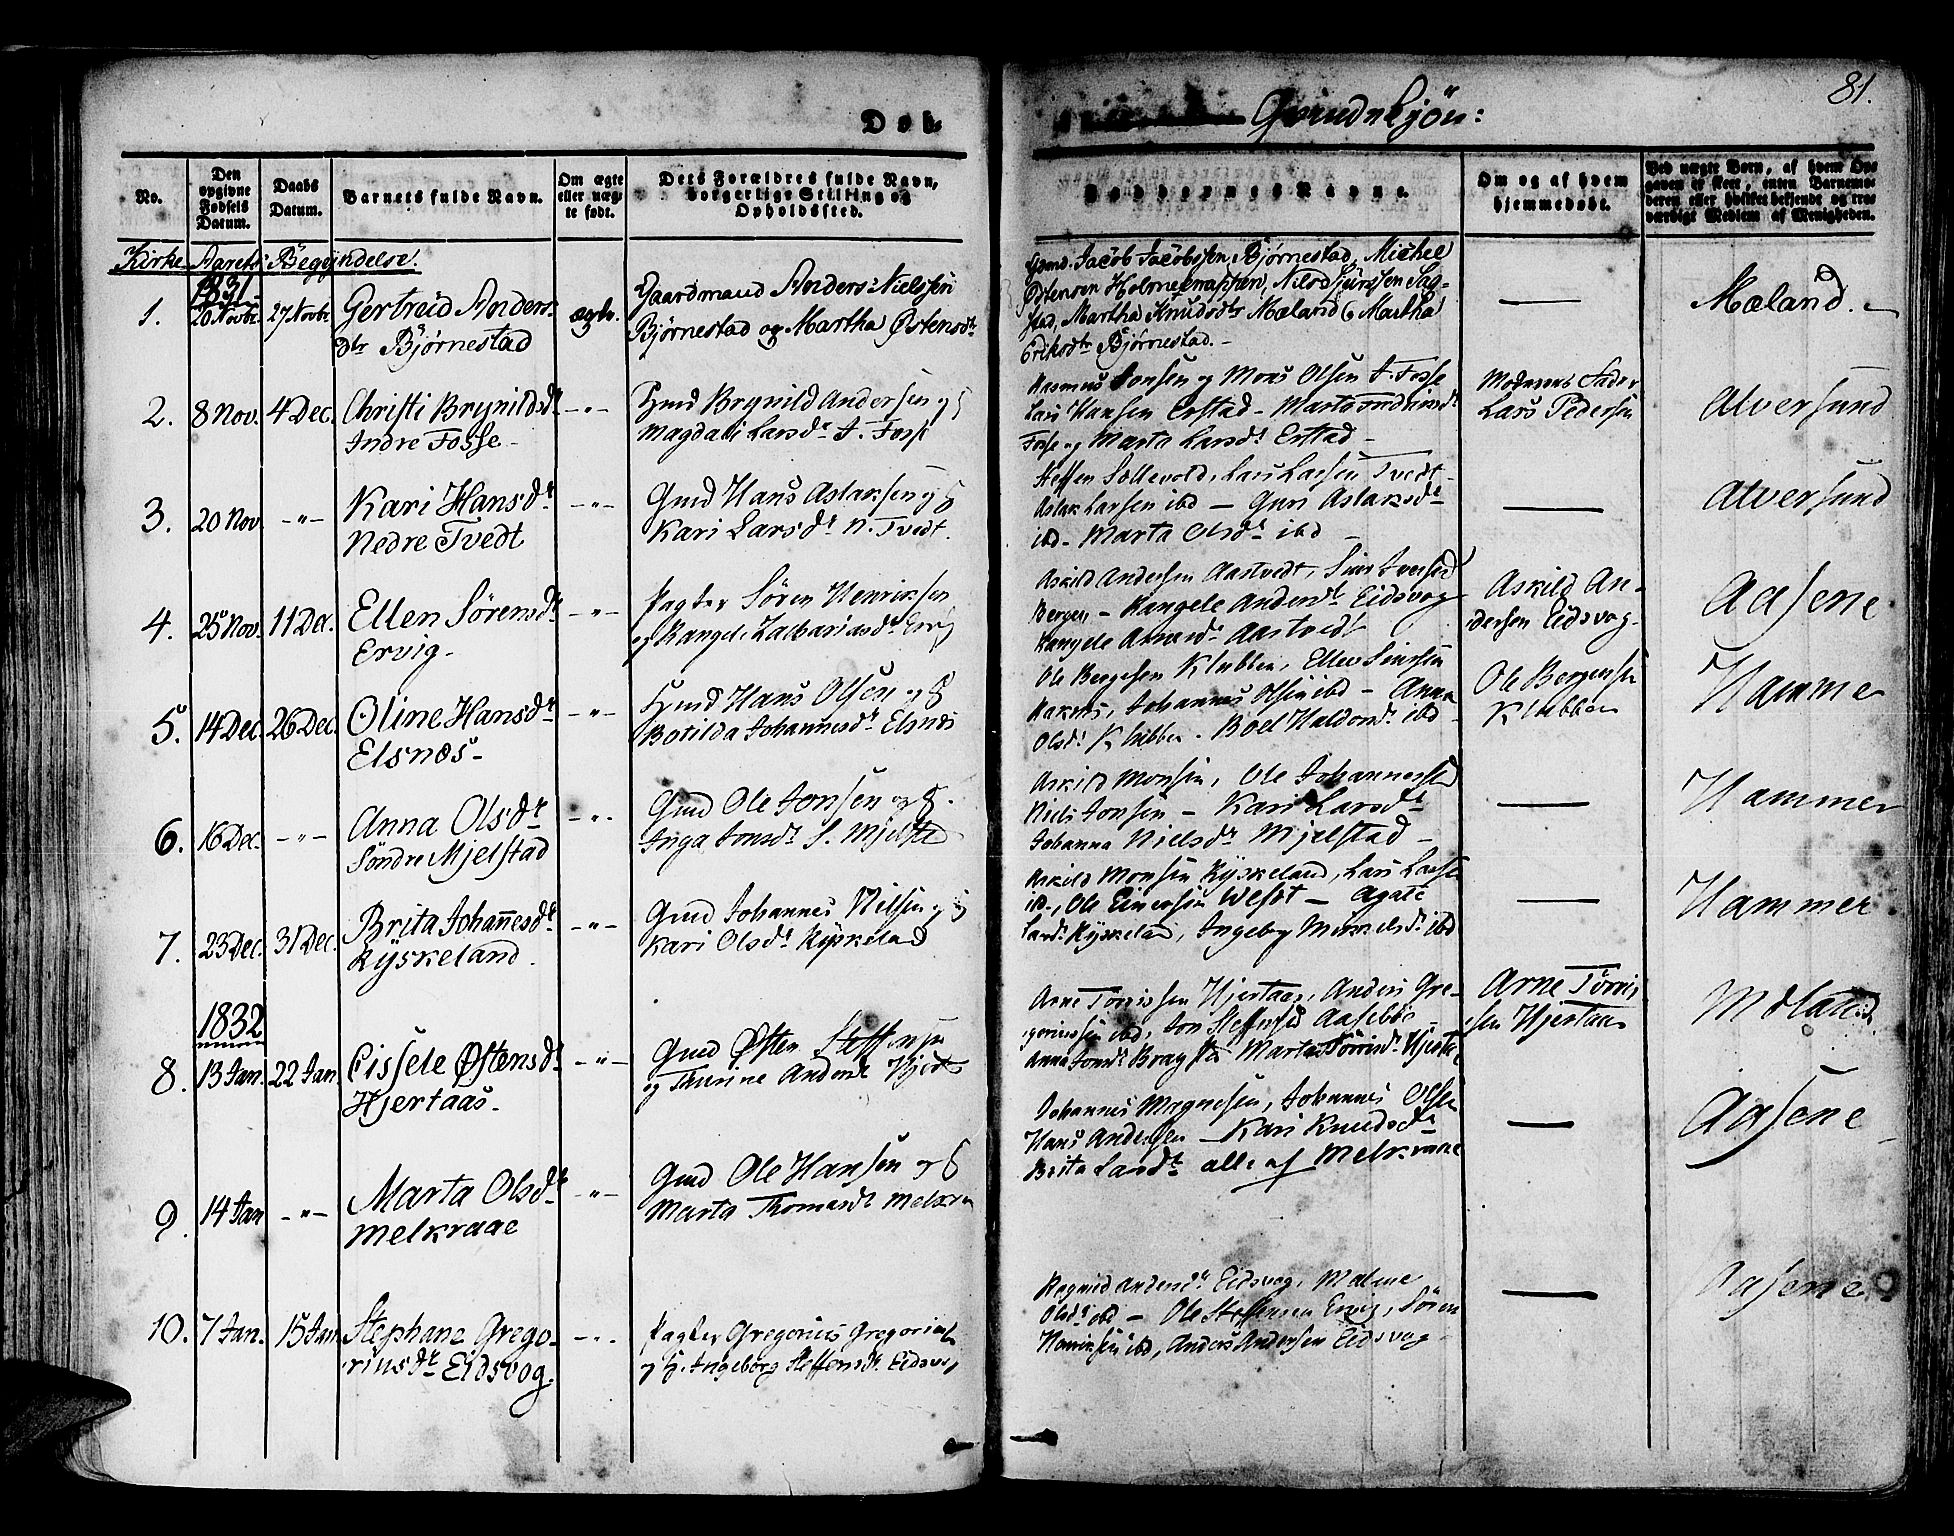 81.
Døb-
Qvindekjøn:
No.
Den opgivne Fødsels Datum.
Daabs Datum.
Barnets fulde Navn.
Om ægte eller uægte født.
Dets Forældres fulde Navn, borgerlige Stilling og Opholdssted.
Faddernes Navne.
Om og af hvem hjemmedøbt.
Ved uægte Børn, af hvem Opgaven er skeet, enten Barnemoderen eller hvilket bekjendt og troværdigt Medlem af Menigheden.
Kirke-Aarets Begyndelse.
1831
1.
20 Novbr.
27 Novbr.
Gertrud Anders-
dtr Bjørnestad
ægte.
Gaardmand Anders Nielsen
Bjørnestad og Martha Østensdtr
Gmd. Jacob Jacobsen Bjørnestad, Michel
Østensen Holmeknappen, Nils Sjursen Sag-
stad, Martha Knudsdtr Mæland & Martha
Eriksdtr Bjørnestad. -
Mæland. -
2.
8 Nov.
4 Dec.
Christi Brynildsdr
Indre Fosse -
- " -
Gmd Brynild Andersen og H
Magdali Larsdr I. Fosse
Rasmus Jonsen og Mons Olsen I. Fosse
Lars Hansen Erstad -
Fosse og Marta Larsdr Erstad -
Moderens Fader
Lars Pedersen
Alversund
3.
20 Nov
- " -
Kari Hansdr
Nedre Tvedt
- " -
Gmd Hans Aslaksen og H
Kari Larsdr N. Tvedt.
Steffen Sollevold, Lars Larsen Tvedt -
Aslak Larsen ibd - Guri Aslaksdr
ibd - Marta Olsdr ibd -
Alversund
4.
25 Nov.
11 Dec.
Ellen Sörensdr
Ervig -
- " -
Pagter Sören Henriksen
og Rangele Zachariasdr Ervig
Askild Andersen Aastvedt, Siur Iversen
Bergen - Rangele Andersdr Eidsvog
Rangele Arnesdr Aastvedt
Askild An-
dersen Eidsvog -
Aasene
5.
14 Dec.
26 Dec.
Oline Hansdr
Elsnæs -
- " -
Gmd Hans Olsen og H
Botilda Johannesdr Elsnæs
Ole Bergesen Klubben, Elles Siursen
Johannes Olsen ibd - Anna
Olsdr Klubben - Boel Haldorsdr ibd -
Ole Bergesen
Klubben
Hammer
6.
16 Dec.
- " -
Anna Olsdr
Söndre Mjelstad
- " -
Gmd Ole Jonsen og H.
Inga Jonsdr S. Mjelstad
Askild Monsen, Ole Johannessen
Niels Jonsen - Kari Larsdr
Johanna Nielsdr Mjelstad -
Hammer
7.
23 Dec.
31 Dec.
Brita Johannesdr
Ryskeland.
- " -
Gmd Johannes Nilsen og H
Kari Olsdr Ryskeland
Askild Monsen Ryskeland, Lars Larsen
ibd, Ole Einersen - Agate
Larsdr Ryskeland, Ingebor Mikkelsdr ibd
Hammer
1832
8.
13 Jan.
22 Jan.
Cissele Østensdr
Hjertaas -
- " -
Gmd Østen Steffensen
og Thurine Andersdr Hjertaas
Arne Torrissen Hjertaas, Anders Gre-
goriussen ibd, Jon Steffensen Aasebö -
Anna Jonsdr Bragstad Marta Torrisdr Hjertaas
Arne Torris
sen Hjertaas
Mæland
9.
14 Jan
- " -
Marta Olsdr
Melkraae
- " -
Gmd Ole Hansen og H
Marta Thomasdr Melkraae
Johannes Magnesen, Johannes Olsen
Hans Andersen - Kari Knudsdr
Brita Larsdr alle af Melkraae
Aasene -
10.
7 Jan.
15 Jan.
Stephane Grego-
riusdr Eidsvog.
- " -
Pagter Gregorius Gregoriusen
og H. Ingeborg Steffensdr Eidsvog
Ragnild Andersdr Eidsvog, Malene
Olsdr ibd - Ole Steffensen Ervig, Sören
Henriksen ibd, Anders Andersen Eidsvog -
Aasene